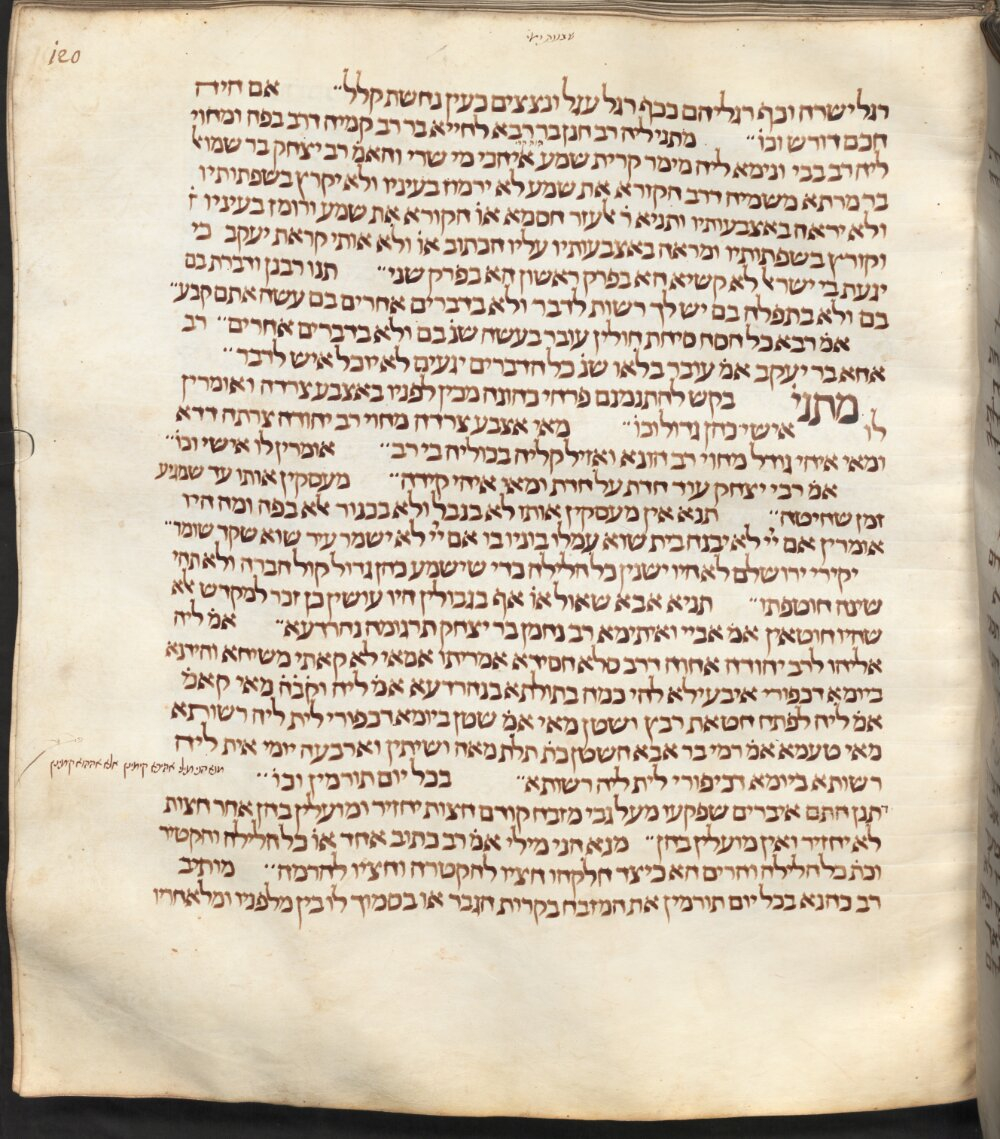 רגל ישרה וכף רגליהם ככף רגל עגל ונצצים כעין נחשת קלל׳׳ אם היה
חכם דורש וכו׳׳ מתני ליה רב חנן בר רבא לחייא בר רב קמיה דרב בפה ומחוי
ליה רב בבי ונימא ליה מימר קרית שמע איהכי מי שרי והאמ׳ ר׳ יצחק בר שמוא׳
בר מרתא משמיה דרב הקורא את שמע לא ירמוז בעיניו ולא יקרץ בשפתותיו
ולא יראה באצבעותיו ותניא ר׳ אלעזר חסמא או׳ הקורא את שמע ורומז בעיניו
וקורץ בשפתותיו ומראה באצבעותיו עליו הכתוב או׳ ולא אותי קראת יעקב כי
יגעת בי ישראל לא קשיא הא בפרק ראשון הא בפרק שני׳׳ תנו רבנן ודברת בם
בם ולא בתפלה בם יש לך רשות לדבר ולא בדברים אחרים בם עשה אתם קבע׳׳
אמ׳ רבא כל הסח סיחת חולין עובר בעשה שנ׳ בם ולא בדברים אחרים׳׳ רב
אחא בר יעקב אמ׳ עובר בלאו שנ׳ כל הדברים יגעים לא יוכל איש לדבר׳׳
מתני׳ בקש להתנמנם פרחי כהונה מכין לפניו באצבע צרדה ואומרין
לו אישי כהן גדול וכו׳׳ מאי אצבע צרדה מחוי רב יהודה צרתה דדא
ומאי איהי גודל מחוי רב הונא ואזיל קליה בכוליה בי רב׳׳ אומרין לו אישי וכו׳׳
אמ׳ רבי יצחק עוד חדת על חדת ומאי איהי קידה׳׳ מעסקין אותו עד שמגיע
זמן שחיטה׳׳ תנא אין מעסקין אותו לא בנבל ולא בכנור אלא בפה ומה היו
אומרין אם יי׳ לא יבנה בית שוא עמלו בוניו בו אם יי׳ לא ישמר עיר שוא שקד שומר׳׳
יקירי ירושלם לא היו ישנין כל הלילה כדי שישמע כהן גדול קול הברה ולא תהי
שינה חוטפתו׳׳ תניא אבא שאול או׳ אף בגבולין היו עושין כן זכר למקדש אלא
שהיו חוטאין אמ׳ אביי ואיתימא רב נחמן בר יצחק תרגומה נהרדעא׳׳ אמ׳ ליה
אליהו לרב יהודה אחוה דרב סלא חסידא אמריתו אמאי לא קאתי משיחא והידנא
ביומא דכפורי איבעילא להי כמה בתולתא בנהרדעא אמ׳ ליה וקב׳ה׳ מאי קאמ׳
אמ׳ ליה לפתח חטאת רבץ ושטן מאי אמ׳ שטן ביומא דכפורי לית ליה רשותא
מאי טעמא אמ׳ רמי בר אבא השטן כת׳ תלת מאה ושיתין וארבעה יומי אית ליה
רשותא ביומא דכיפורי לית ליה רשותא׳׳ בכל יום תורמין וכו׳׳
תנן התם איברים שפקעו מעל גבי מזבח קודם חצות יחזיר ומועלין בהן אחר חצות
לא יחזיר ואין מועלין בהן׳׳ מנא הני מילי אמ׳ רב כתוב אחד או׳ כל הלילה והקטיר
וכת׳ כל הלילה והרים הא כיצד חלקהו חציו להקטרה וחציו להרמה׳׳ מותיב
רב כהנא בכל יום תורמין את המזבח בקרות הגבר או בסמוך לו בין מלפניו ומלאחריו